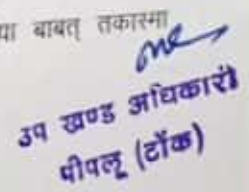 या बाबत् तकास्मा
उप खण्ड अधिकारी
पीपलू (टोंक)